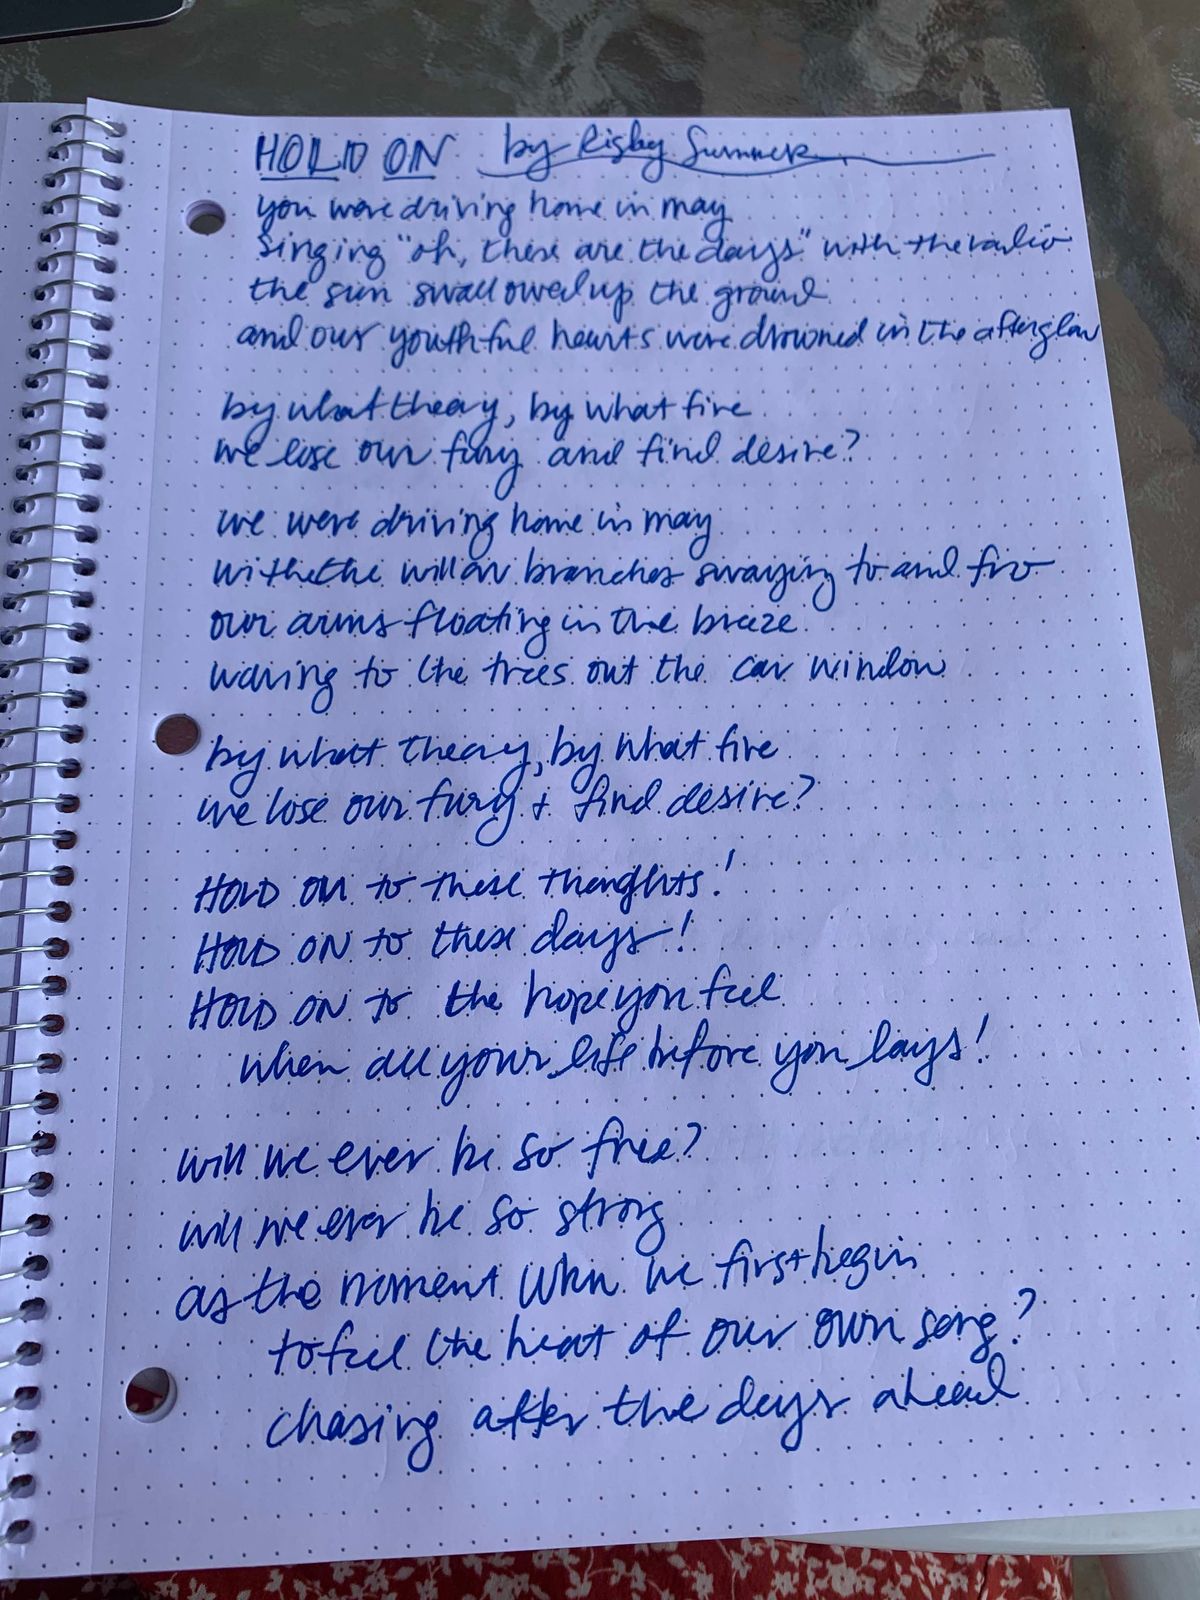 HOLD ON by Risby Summer
you were driving home in may
singing "oh, these are the days" with the radio
the sun swallowed up the ground
and our youthful hearts were drowned in the afterglow
by what theory, by what fire
we lose our fury and find desire?
we were driving home in may
with the willow branches swaying to and fro
our arms floating in the breeze
waving to the trees out the car window
by what theory, by what fire
we lose our fury + find desire?
HOLD ON to these thoughts!
HOLD ON to these days!
HOLD ON to the hope you feel
when all your life before you lays!
will we ever be so free?
will we ever be so strong
as the moment when we first begin
to feel the heat of our own song?
chasing after the days ahead